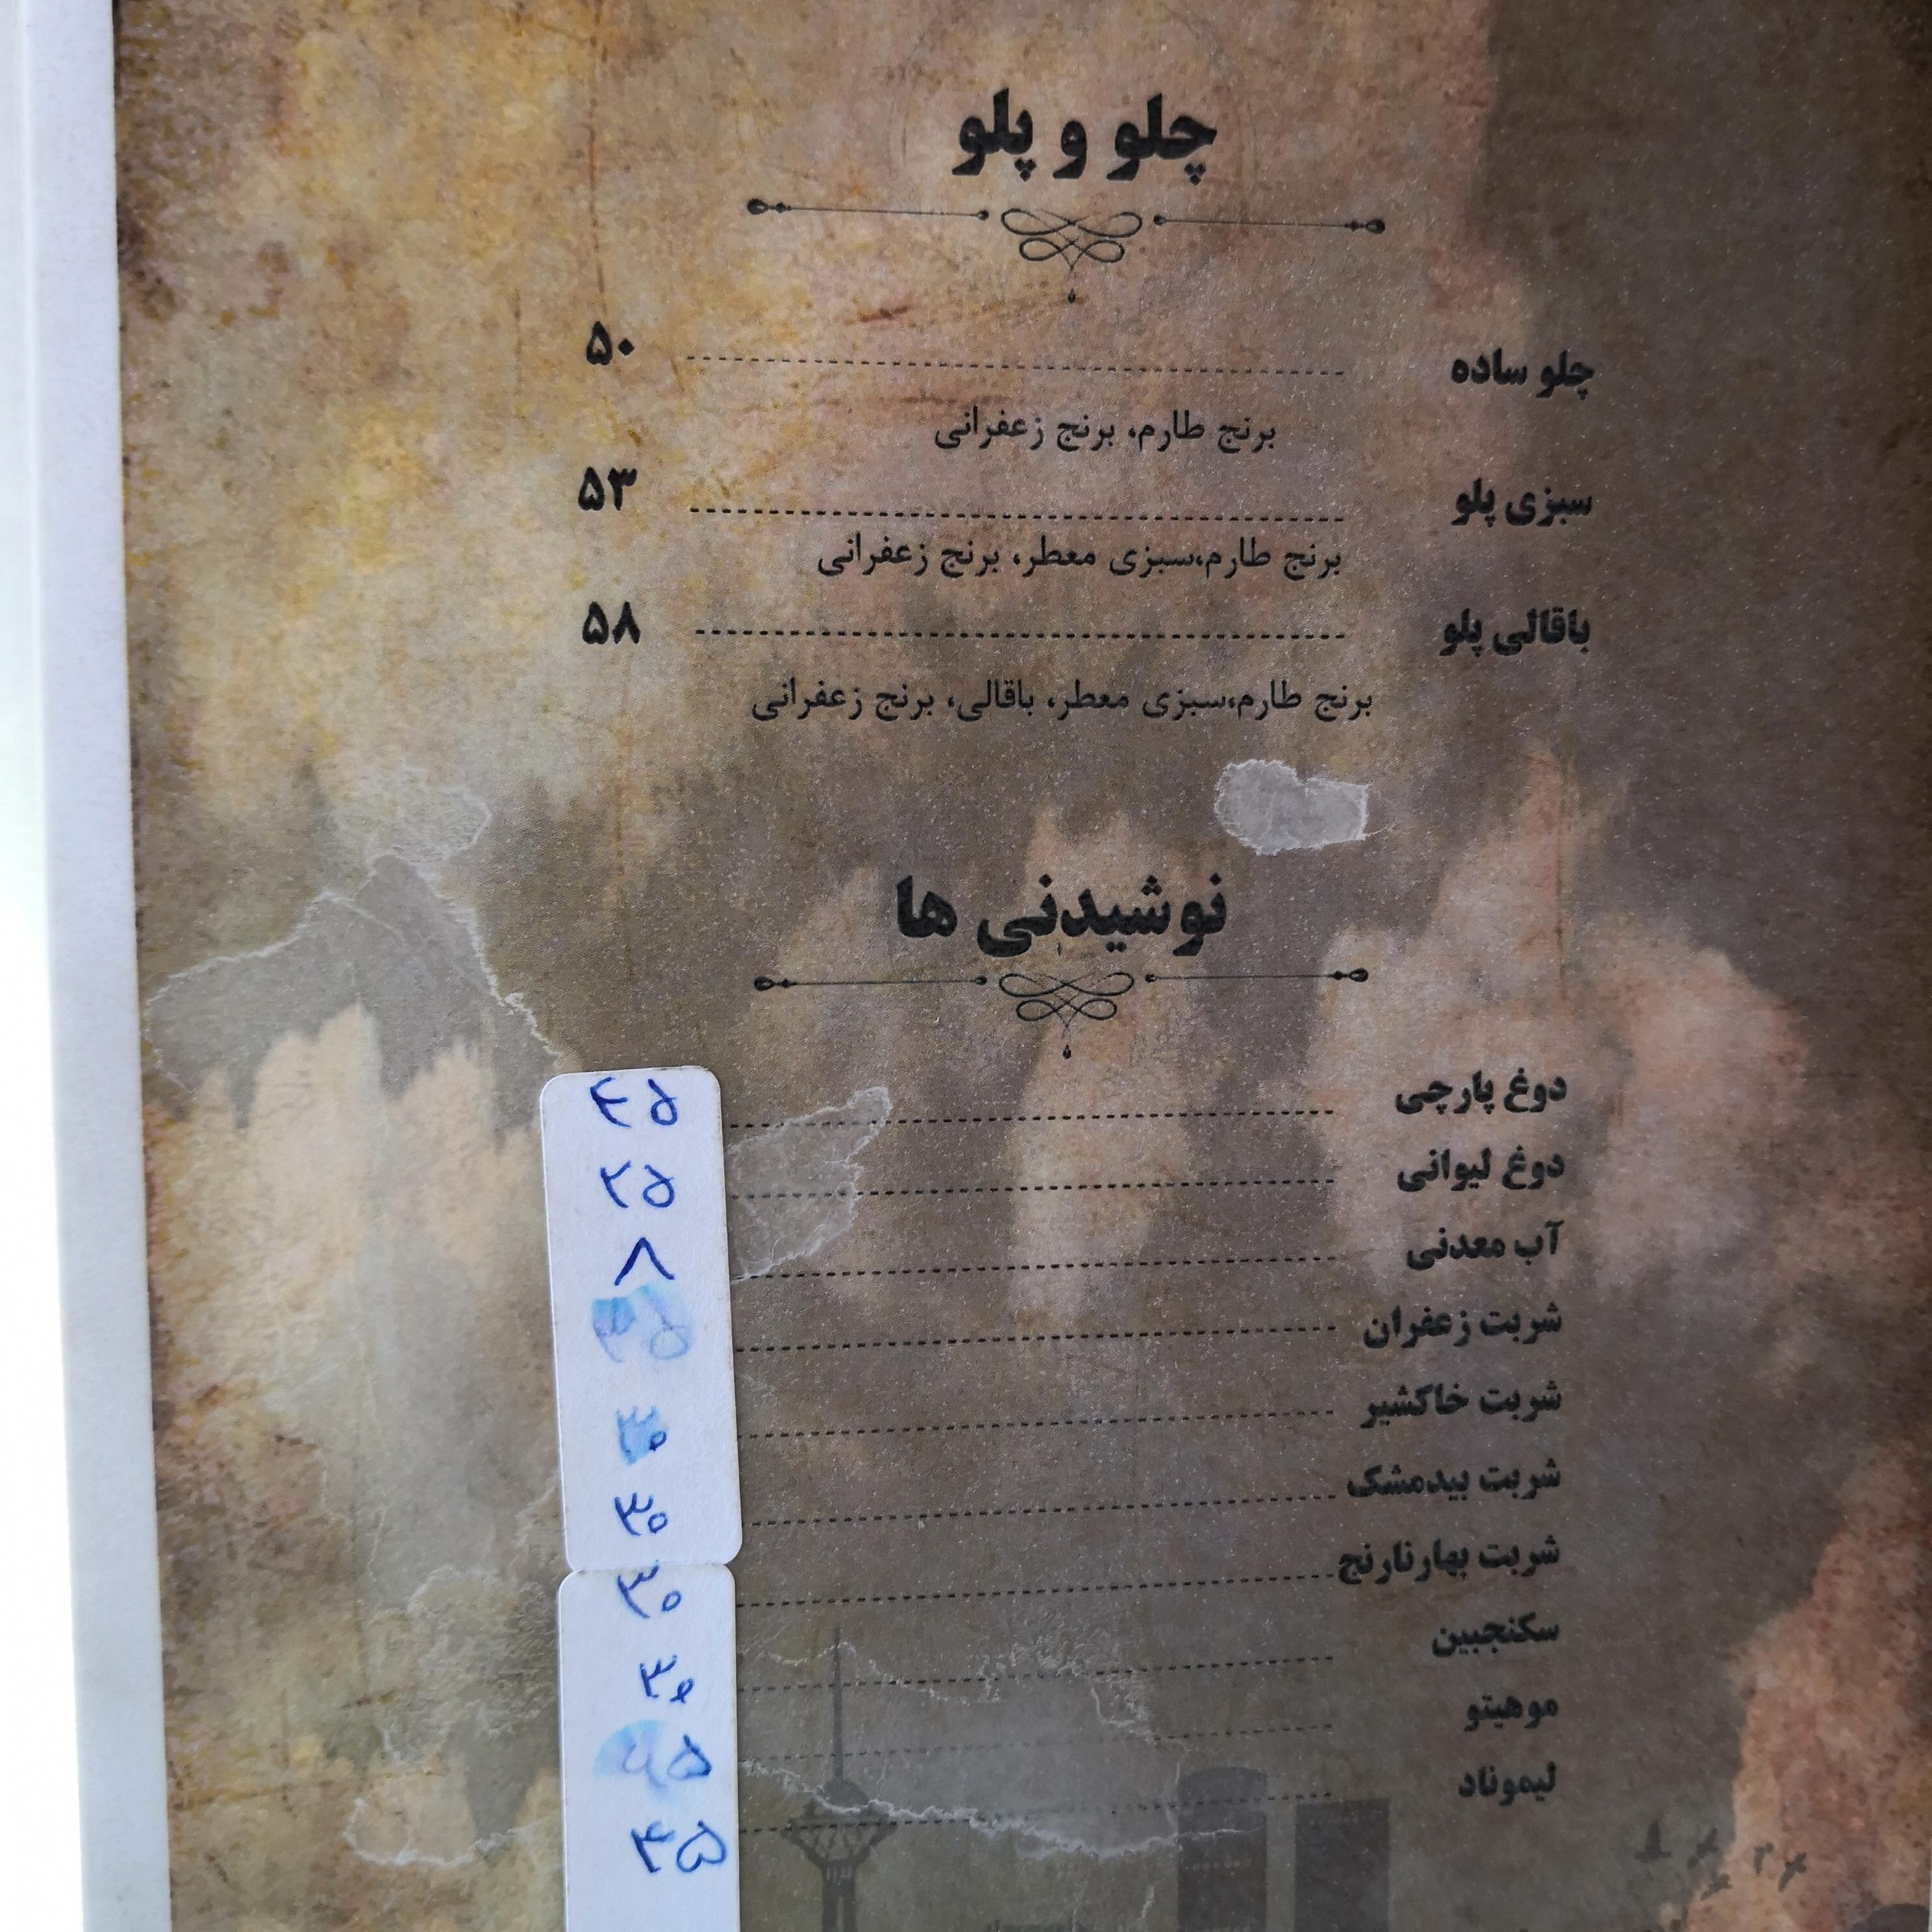 چلو و پلو
چلو ساده ۵۰
برنج طارم، برنج زعفرانی
سبزی پلو ۵۳
برنج طارم،سبزی معطر، برنج زعفرانی
باقالی پلو ۵۸
برنج طارم،سبزی معطر، باقالی، برنج زعفرانی
نوشیدنی ها
دوغ پارچی ۴۵
دوغ لیوانی ۲۵
آب معدنی ۸
شربت زعفران ۳۵
شربت خاکشیر ۳۰
شربت بیدمشک ۳۰
شربت بهارنارنج ۳۰
سکنجبین ۳۰
موهیتو
لیموناد ۴۵